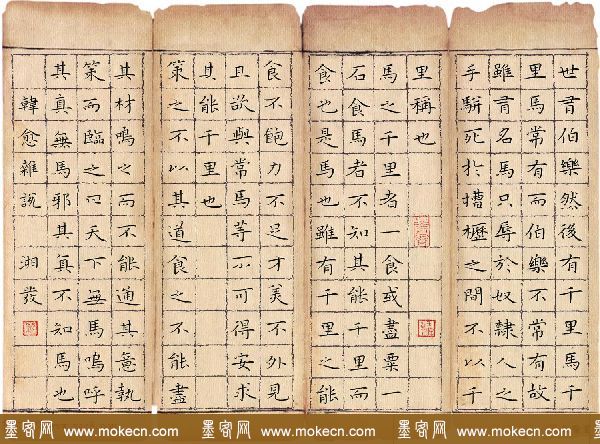 世有伯樂然後有千里馬千
里馬常有而伯樂不常有故
雖有名馬只辱於奴隸人之
手駢死於槽櫪之間不以千
里稱也
馬之千里者一食或盡粟一
石食馬者不知其能千里而
食也是馬也雖有千里之能
食不飽力不足才美不外見
且欲與常馬等不可得安求
其能千里也
策之不以其道食之不能盡
其材鳴之而不能通其意執
策而臨之曰天下無馬嗚呼
其真無馬邪其真不知馬也
韓愈雜說 湘發
墨客网 www.mokecn.com 墨客网 www.mokecn.com 墨客网 www.mokecn.com 墨客网 www.mokecn.com